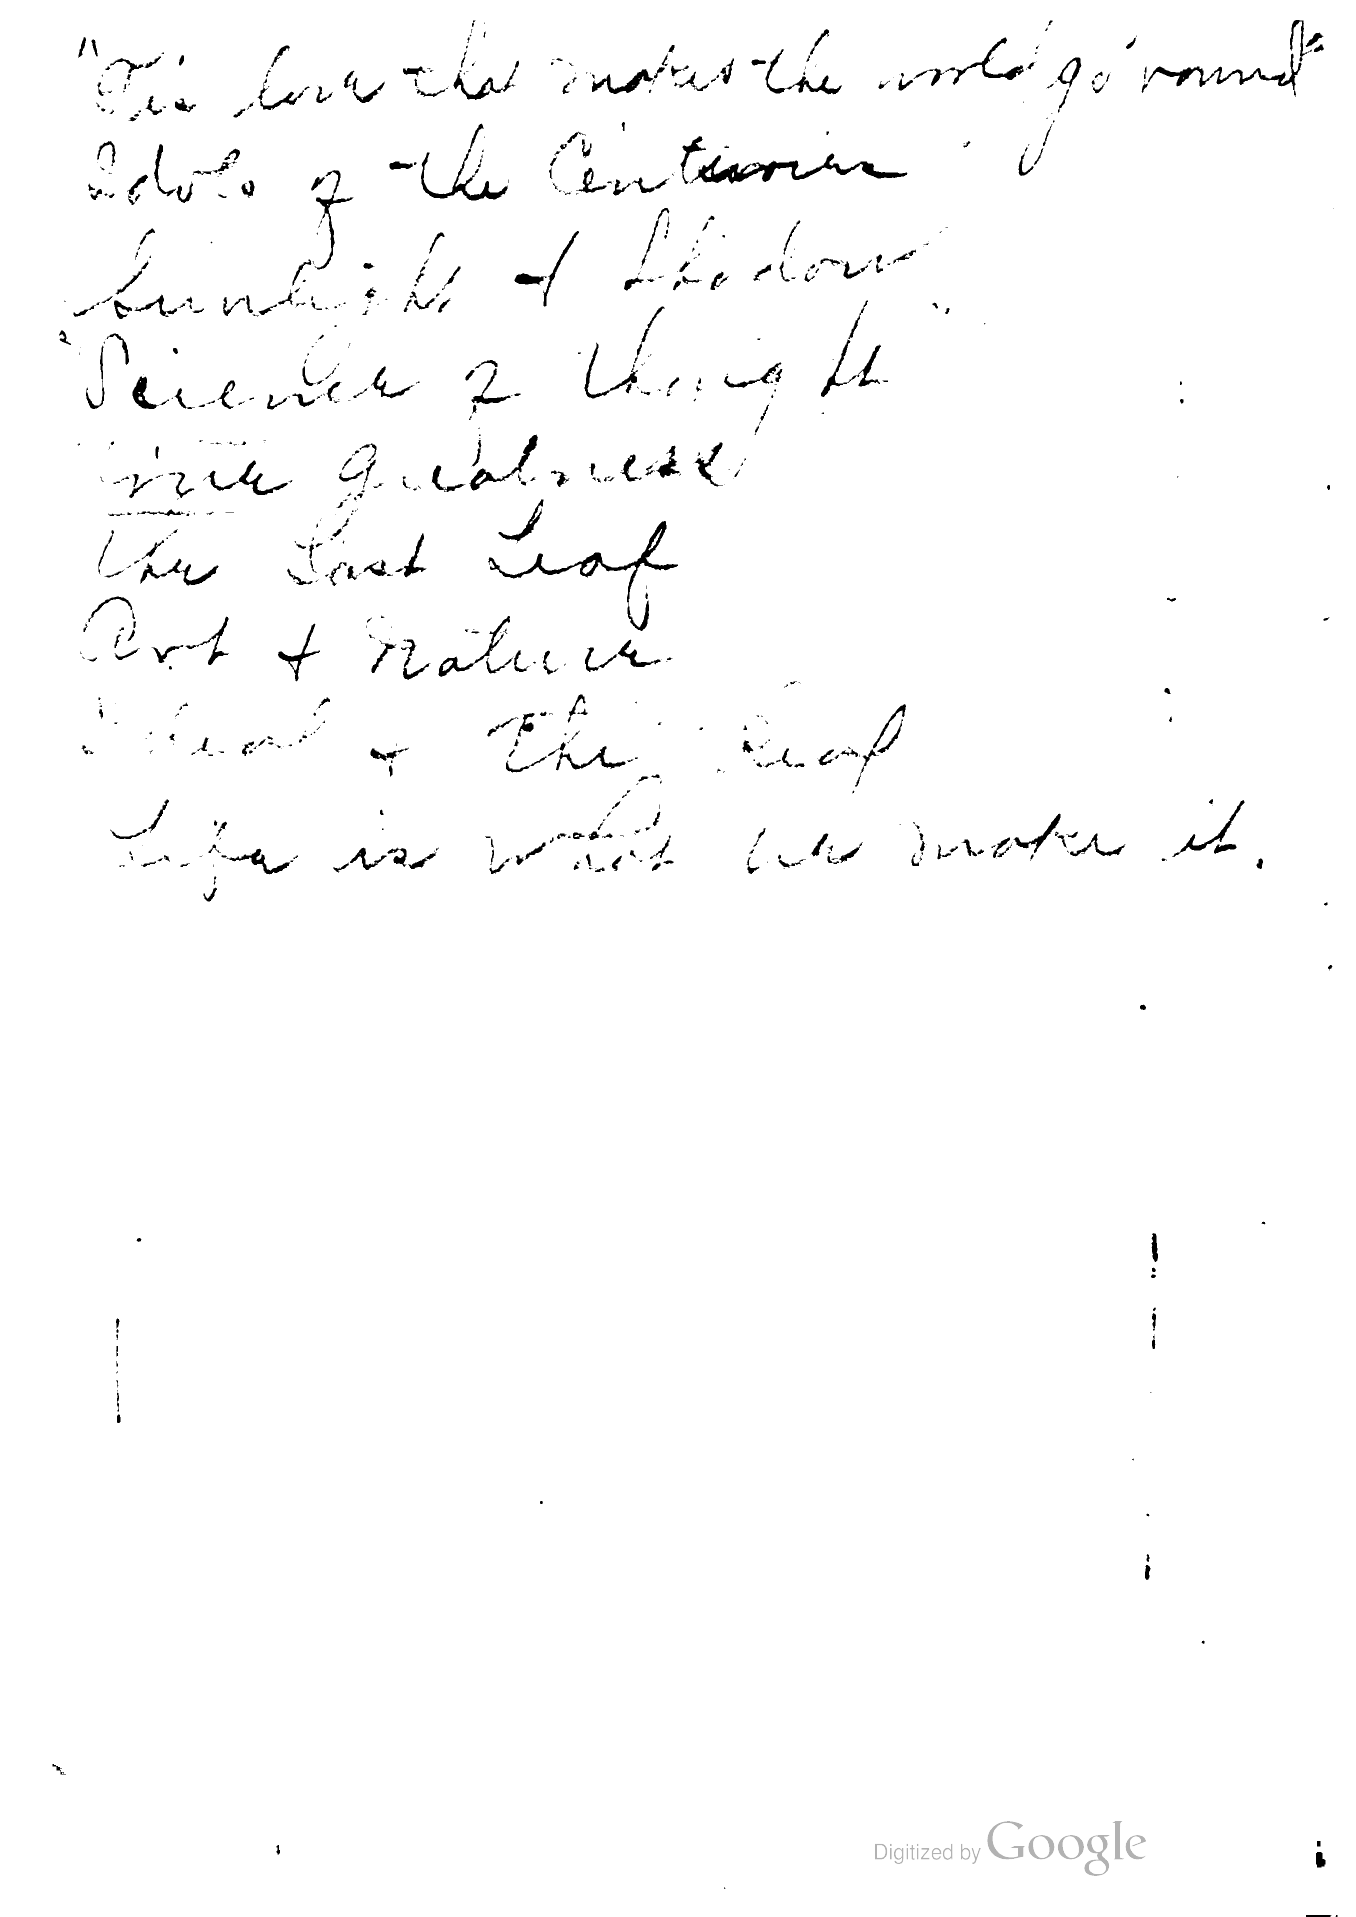 "Tis love that makes the world go 'round"
Idols of the Centuries
Sunlight & Shadow
"Science of thought"
True greatness
The Last Leaf
Art & Nature
Ideal & The Real
Life is what we make it.
Digitized by Google